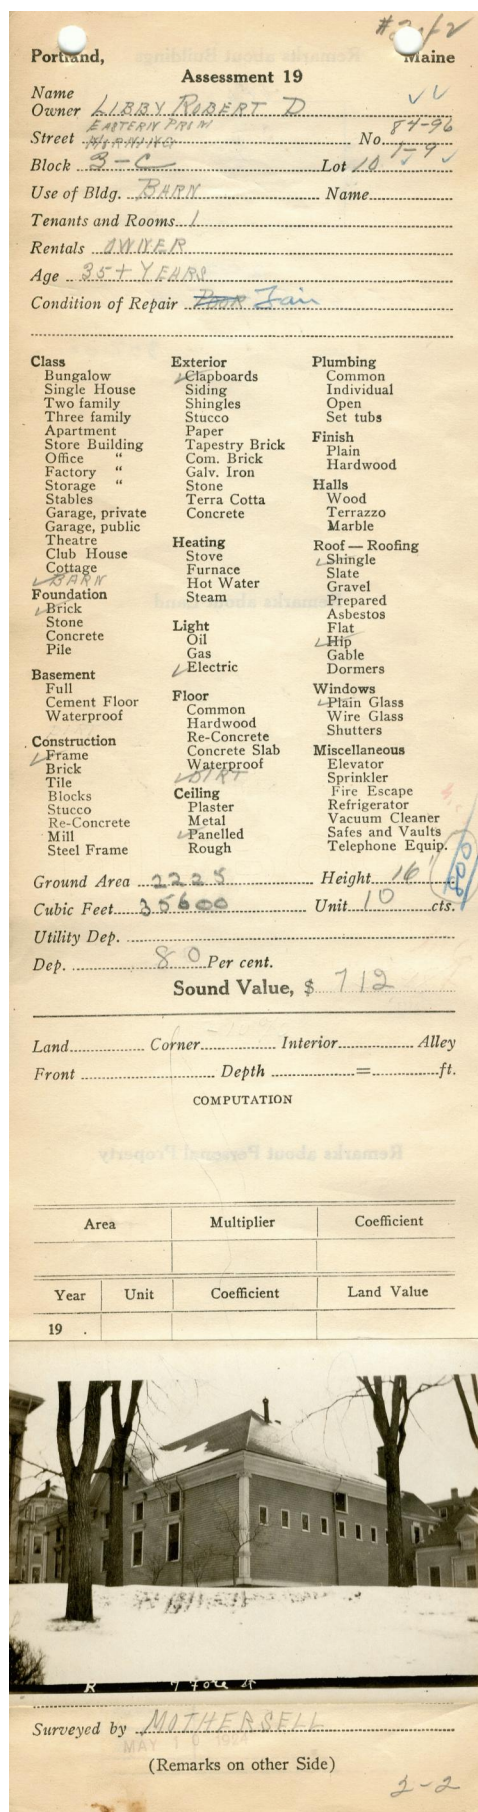 #2 of 2
Portland, Maine
Assessment 19
Name
Owner LIBBY ROBERT D
EASTERN PROM 84-96
Street MORNING No. 1-9
Block 3-C Lot 10
Use of Bldg. BARN Name
Tenants and Rooms 1
Rentals OWNER
Age 35+ YEARS
Condition of Repair POOR Fair
Class
Bungalow
Single House
Two family
Three family
Apartment
Store Building
Office "
Factory "
Storage "
Stables
Garage, private
Garage, public
Theatre
Club House
Cottage
BARN
Foundation
Brick
Stone
Concrete
Pile
Basement
Full
Cement Floor
Waterproof
Construction
Frame
Brick
Tile
Blocks
Stucco
Re-Concrete
Mill
Steel Frame
Exterior
Clapboards
Siding
Shingles
Stucco
Paper
Tapestry Brick
Com. Brick
Galv. Iron
Stone
Terra Cotta
Concrete
Heating
Stove
Furnace
Hot Water
Steam
Light
Oil
Gas
Electric
Floor
Common
Hardwood
Re-Concrete
Concrete Slab
Waterproof
DIRT
Ceiling
Plaster
Metal
Panelled
Rough
Plumbing
Common
Individual
Open
Set tubs
Finish
Plain
Hardwood
Halls
Wood
Terrazzo
Marble
Roof — Roofing
Shingle
Slate
Gravel
Prepared
Asbestos
Flat
Hip
Gable
Dormers
Windows
Plain Glass
Wire Glass
Shutters
Miscellaneous
Elevator
Sprinkler
Fire Escape
Refrigerator
Vacuum Cleaner
Safes and Vaults
Telephone Equip.
Ground Area 2225 Height 16'
Cubic Feet 35600 Unit 10 cts.
Utility Dep.
Dep. 80 Per cent.
Sound Value, $ 712
Land Corner Interior Alley
Front Depth = ft.
COMPUTATION
Area Multiplier Coefficient
Year Unit Coefficient Land Value
19 .
R 7 Fore St
Surveyed by MOTHERSELL
MAY 10 1924
(Remarks on other Side)
2-2